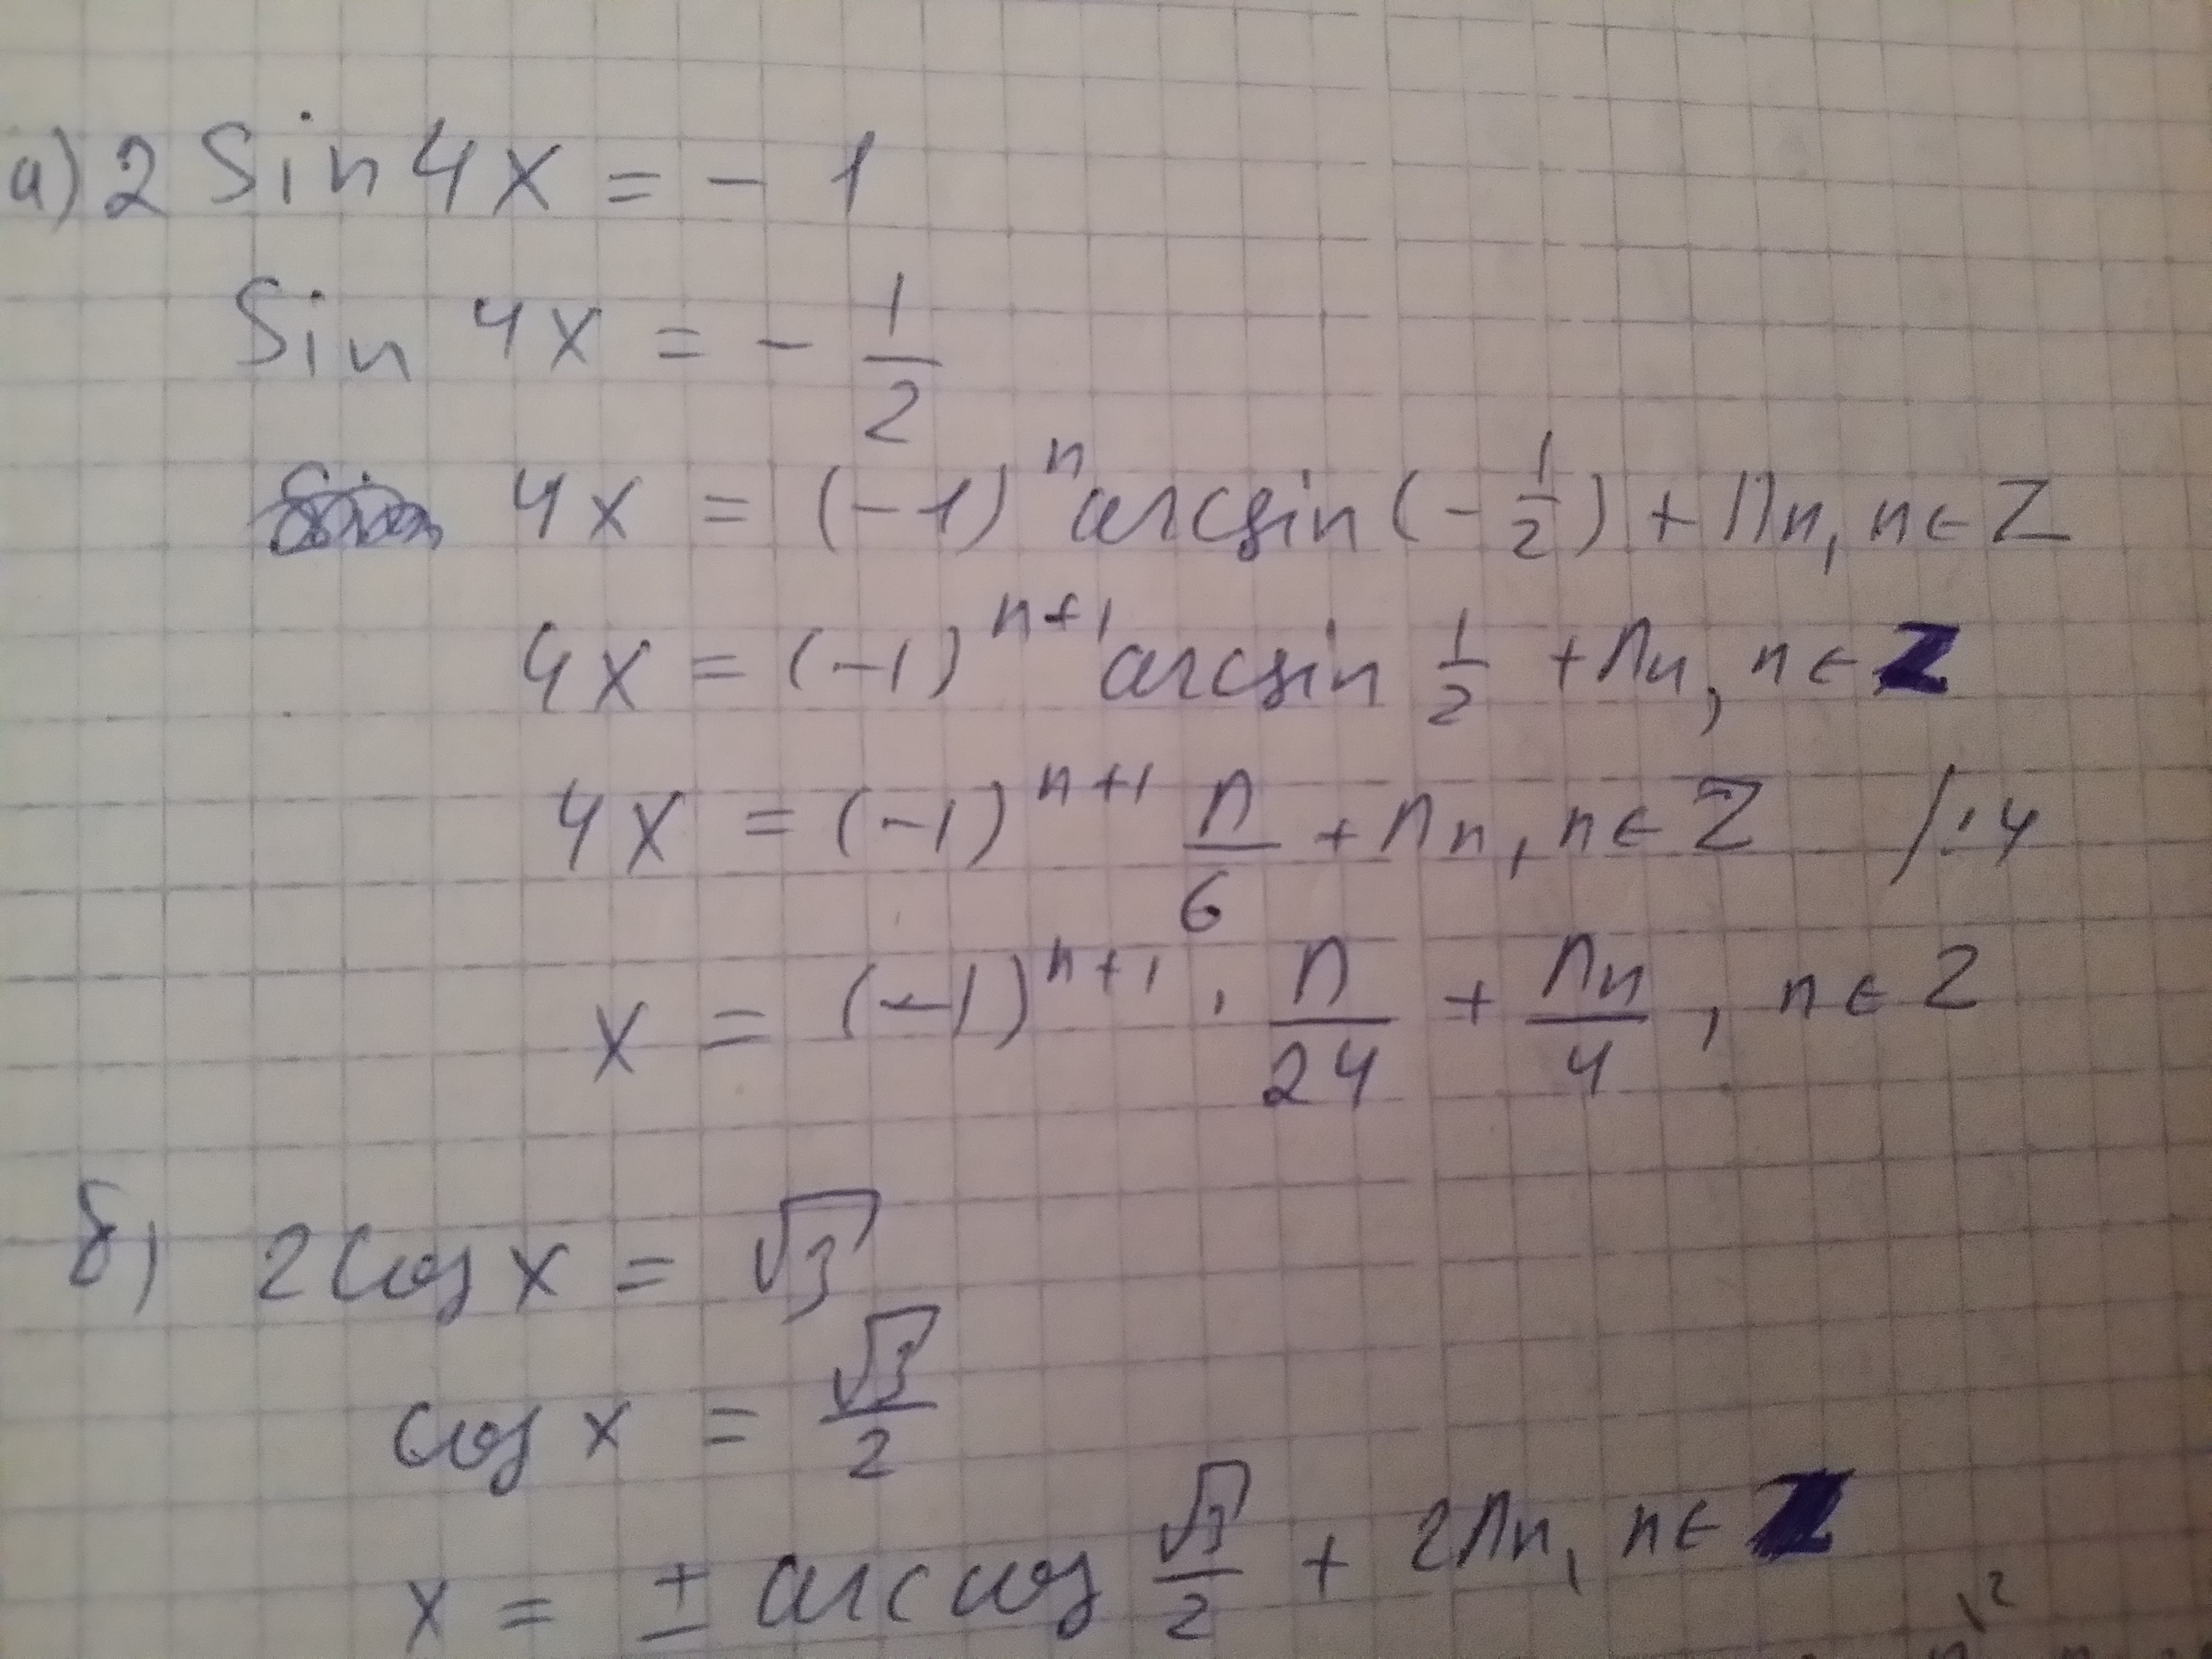 а) 2 Sin 4x = - 1
Sin 4x = - 1/2
4x = (-1)^n arcsin (- 1/2) + πn, n ∈ Z
4x = (-1)^(n+1) arcsin 1/2 + πn, n ∈ Z
4x = (-1)^(n+1) π/6 + πn, n ∈ Z /:4
x = (-1)^(n+1) · π/24 + πn/4, n ∈ Z
б) 2 cos x = √3
cos x = √3/2
x = ± arccos √3/2 + 2πn, n ∈ Z